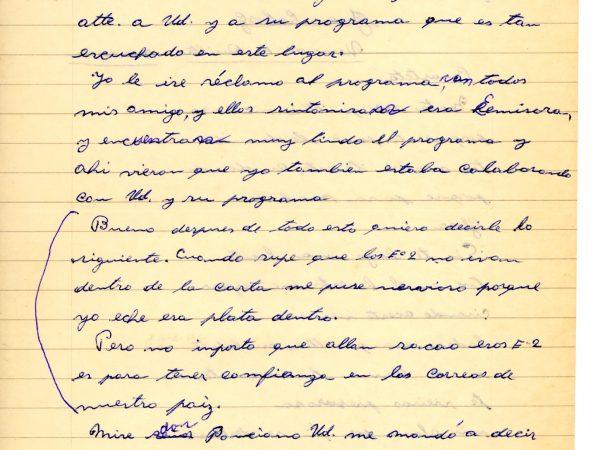 atte. a Ud. y a su programa que es tan
escuchado en este lugar.
Yo le ise réclamo al programa, con todos
mis amigo, y ellos sintoniza esa Eemisora,
y encuentra muy lindo el programa y
ahi vieron que yo tambien estaba calaborando
con Ud. y su programa
Bueno despues de todo esto quiero decirle lo
siguiente. Cuando supe que los Eº2 no ivan
dentro de la carta me puse nervioso porque
yo eche esa plata dentro.
Pero no inporto que allan sacao esos E-2
es para tener comfianza en los Correos de
nuestro paiz.
Mire don Ponciano Ud. me mandó a decir